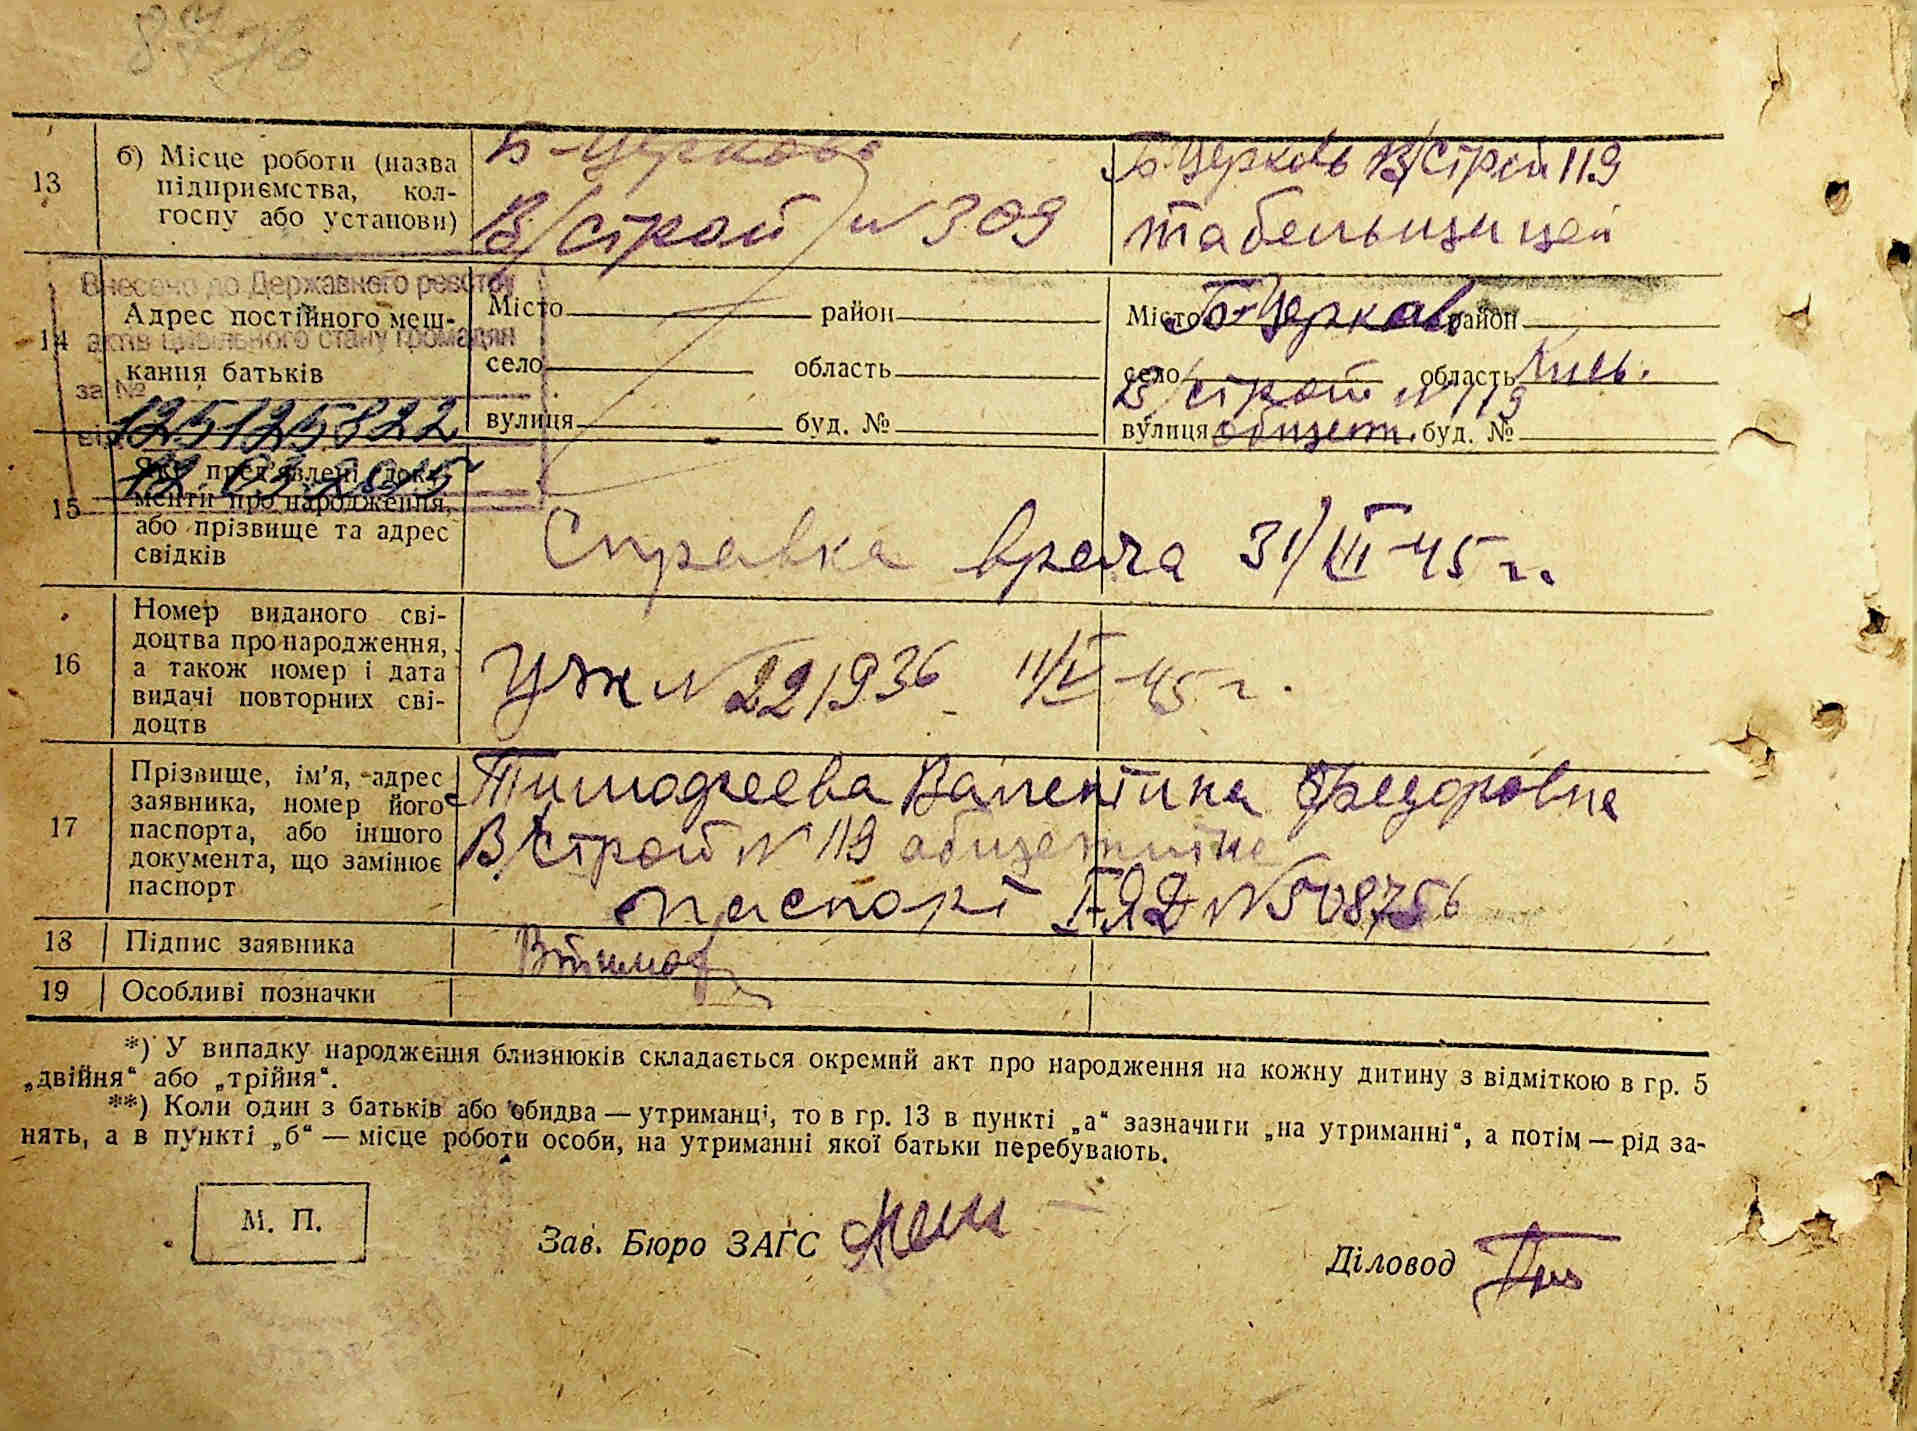 13
б) Місце роботи (назва
підприємства, кол-
госпу або установи)
Б-Церковь
В/строй № 309
Б-Церковь В/строй 119
табельщицей
Внесено до Державного реєстру
актів цивільного стану громадян
за №
125125822
від
12 03 2015
14
Адрес постійного меш-
кання батьків
Місто район
село область
вулиця буд. №
Місто Б-Церковь район
село область Киев.
В/строй № 119
вулиця общежит. буд. №
15
Які пред'явлені доку-
менти про народження,
або прізвище та адрес
свідків
Справка врача 31/III-45 г.
16
Номер виданого сві-
доцтва про народження,
а також номер і дата
видачі повторних сві-
доцтв
УЖ № 221936 11/IV-45 г.
17
Прізвище, ім'я, адрес
заявника, номер його
паспорта, або іншого
документа, що замінює
паспорт
Тимофеева Валентина Федоровна
В/строй № 119 общежитие
паспорт № 508756
18
Підпис заявника
ВТимоф
19
Особливі позначки
*) У випадку народження близнюків складається окремий акт про народження на кожну дитину з відміткою в гр. 5
„двійня“ або „трійня“.
**) Коли один з батьків або обидва — утриманці, то в гр. 13 в пункті „а“ зазначити „на утриманні“, а потім — рід за-
нять, а в пункті „б“ — місце роботи особи, на утриманні якої батьки перебувають.
М. П.
Зав. Бюро ЗАГС
Діловод